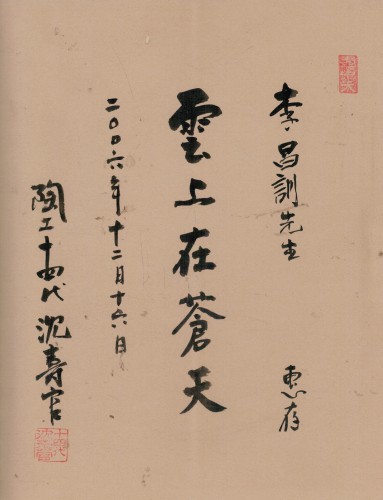 李昌訓先生
惠存
雲上在蒼天
二〇〇六年十二月十六日
陶工十四代沈壽官